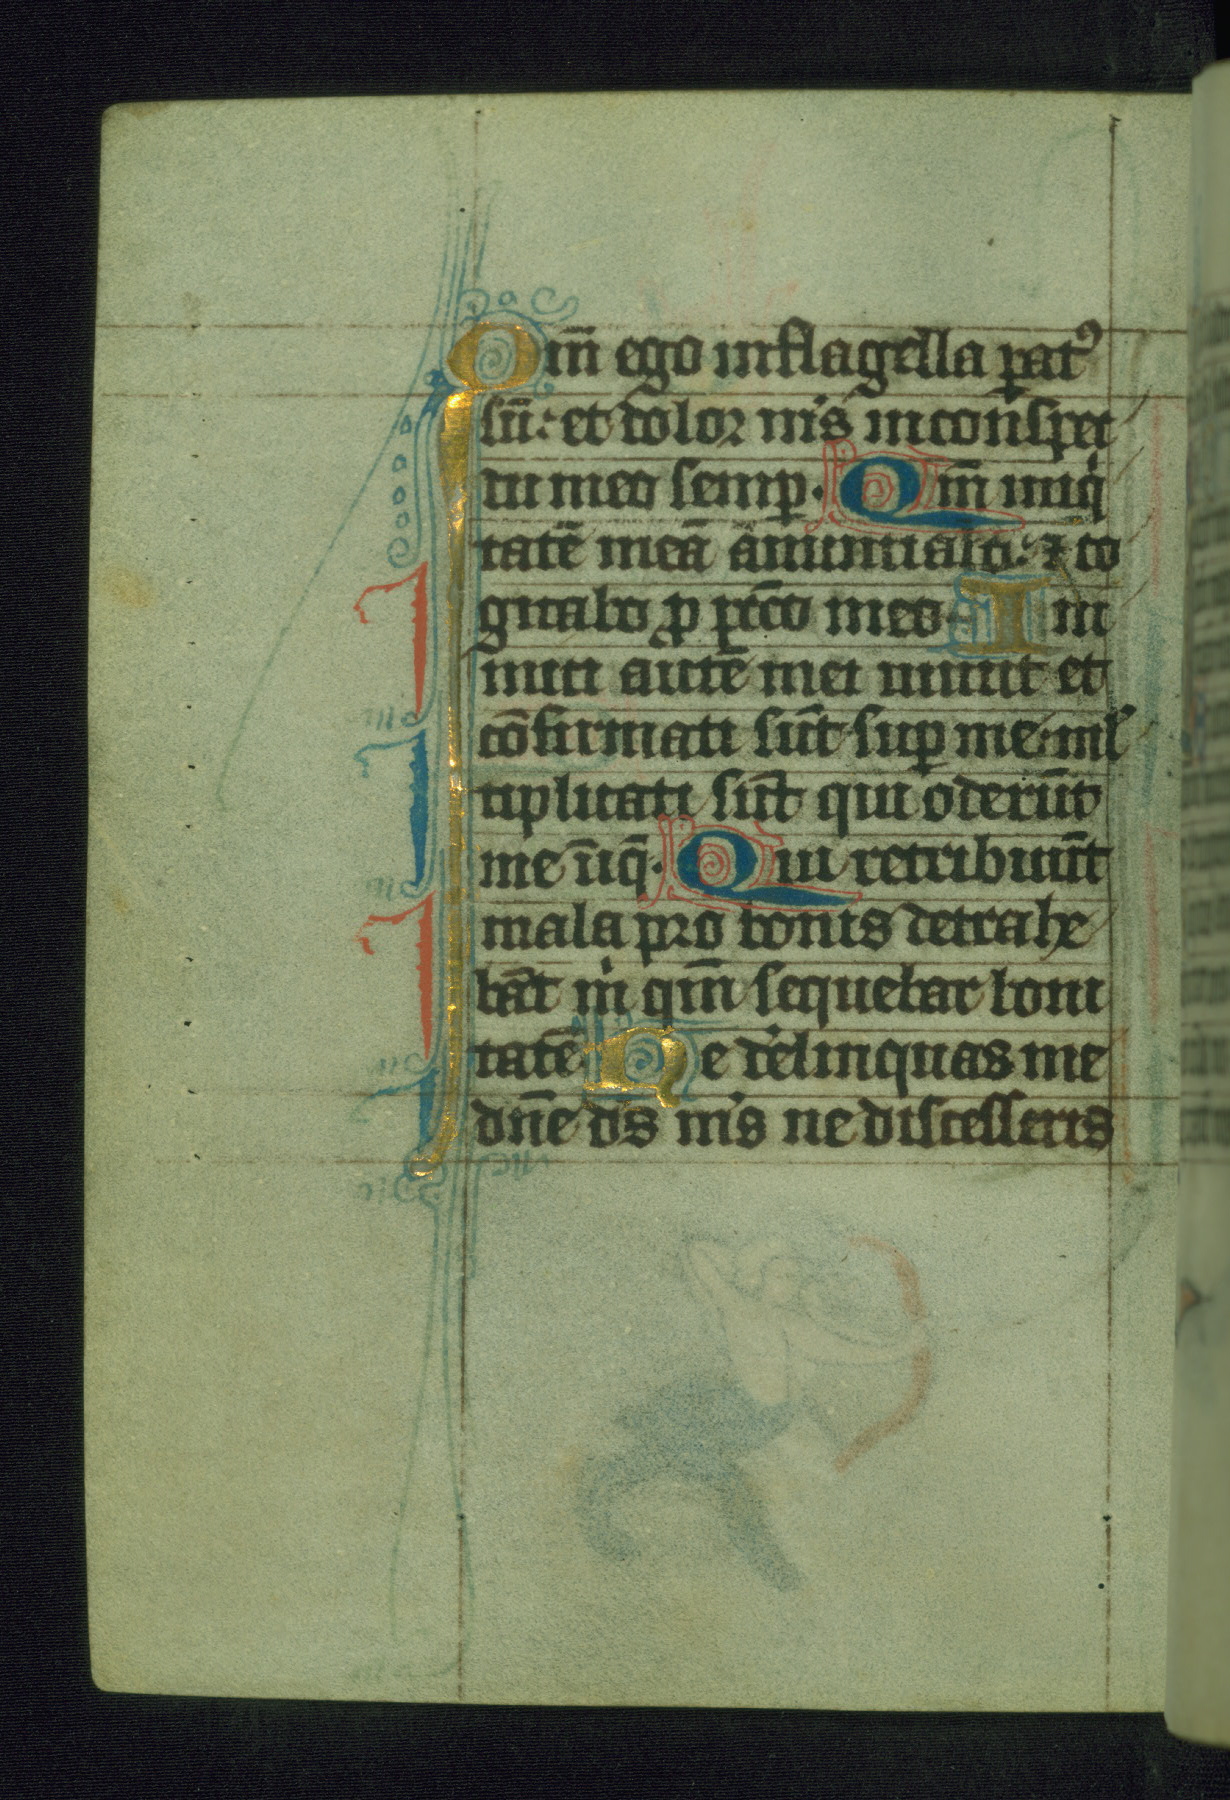 Qm̄ ego in flagella ꝑat⁹
sū: et dolor m̄s in conspec
tu meo semꝑ. Qm̄ iniq̇
tatē meā anuntiabo: ⁊ co
gitabo ꝓ pctō meo. Ini
mici autē mei uiuūt et
cōfirmati sūt suꝑ me: ml̄
tiplicati sūt qui oderūt
me īiq̄. Qui retribuūt
mala pro bonis detrahe
bāt ṁ qm̄ sequebar boni
tatē. Ne derelinquas me
dn̄e ds̄ ms̄ ne discesseris